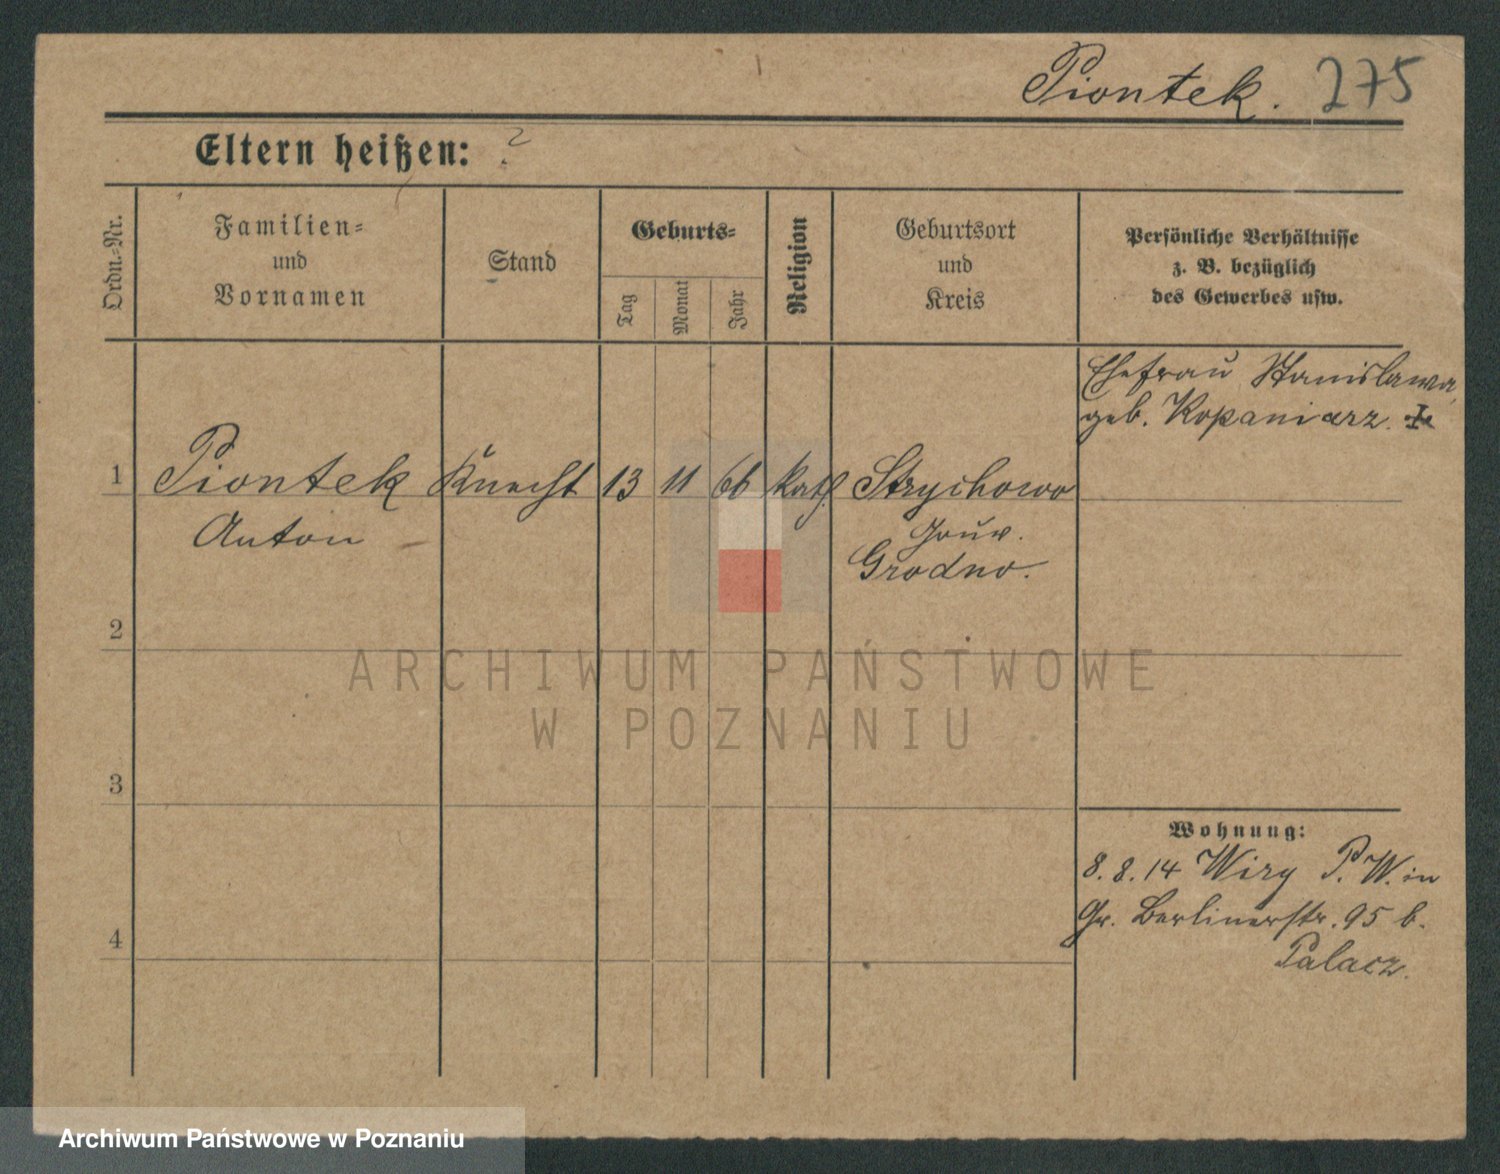 Piontek. 275
Eltern heißen: ?
Ordn.-Nr.
Familien-
und
Vornamen
Stand
Geburts-
Tag
Monat
Jahr
Religion
Geburtsort
und
Kreis
Persönliche Verhältnisse
z. B. bezüglich
des Gewerbes usw.
Ehefrau Stanislawa,
geb. Kopaniarz.
1 Piontek Knecht 13 11 66 kath. Strychowo
Anton Gouv.
Grodno.
2
3
4
Wohnung:
8.8.14 Wiry P. W. in
Gr. Berlinerstr. 95 b.
Palacz.
ARCHIWUM PAŃSTWOWE
W POZNANIU
Archiwum Państwowe w Poznaniu